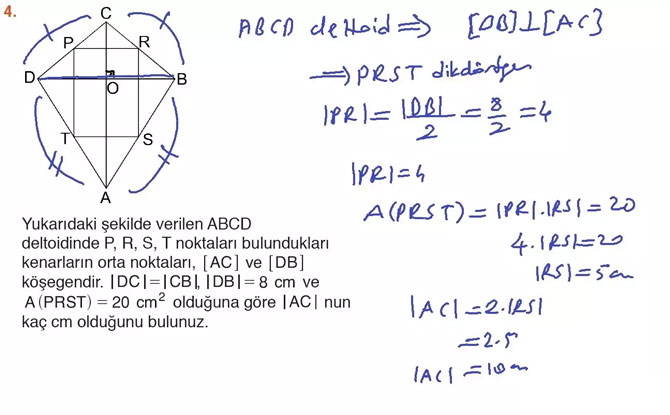 4.
C
P
R
D
B
O
T
S
A
ABCD deltoid ⟹ [DB]⊥[AC]
⟹ PRST dikdörtgen
|PR| = |DB|/2 = 8/2 = 4
|PR| = 4
A(PRST) = |PR|.|RS| = 20
4.|RS| = 20
|RS| = 5cm
|AC| = 2.|RS|
= 2.5
|AC| = 10cm
Yukarıdaki şekilde verilen ABCD
deltoidinde P, R, S, T noktaları bulundukları
kenarların orta noktaları, [AC] ve [DB]
köşegendir. |DC|=|CB|, |DB|= 8 cm ve
A(PRST) = 20 cm² olduğuna göre |AC| nun
kaç cm olduğunu bulunuz.